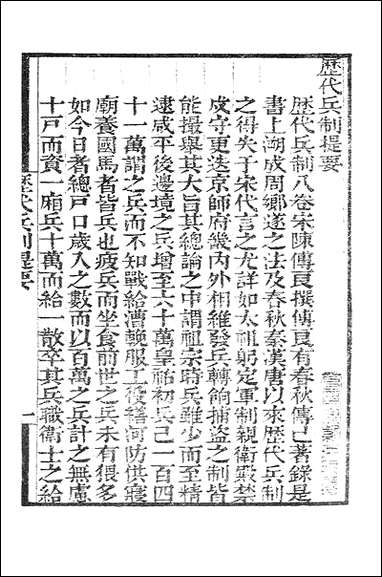 歷代兵制提要
歷代兵制八卷宋陳傅良撰傅良有春秋傳已著錄是
書上溯成周鄉遂之法及春秋秦漢唐以來歷代兵制
之得失于宋代言之尤詳如太祖躬定軍制親衛殿禁
戍守更迭京師府畿內外相維發兵轉餉捕盜之制皆
能撮舉其大旨其總論之中謂祖宗時兵雖少而至精
逮咸平後邊境之兵增至六十萬皇祐初兵已一百四
十一萬謂之兵而不知戰給漕輓服工役繕河防供寢
廟養國馬者皆兵也疲兵而坐食前世之兵未有猥多
如今日者總戶口歲入之數而以百萬之兵計之無慮
十戶而資一廂兵十萬而給一散卒其兵職衛士之給
歷代兵制提要
一